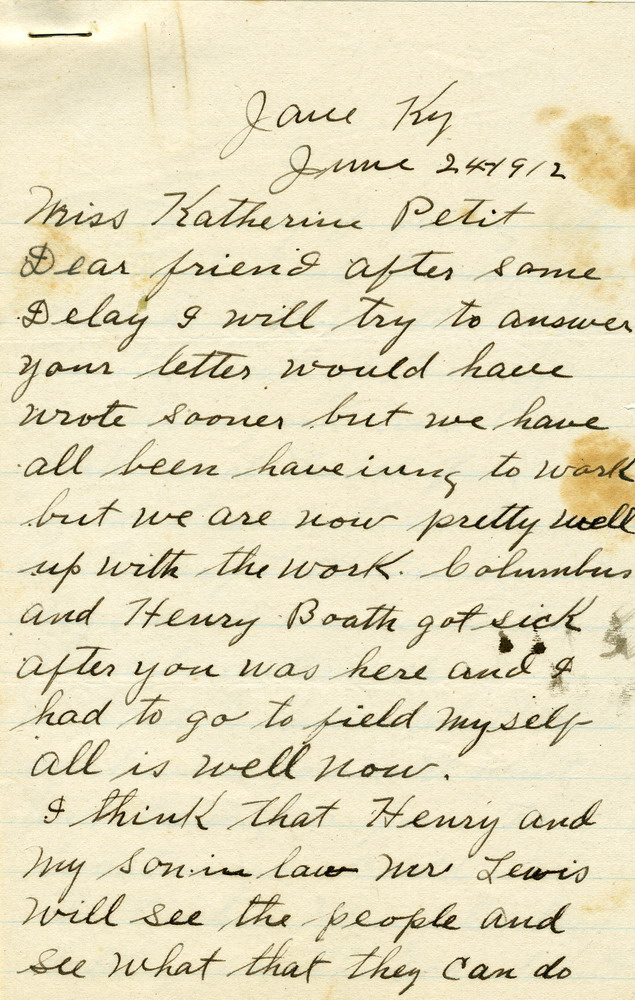 Jane Ky
June 24-1912
Miss Katherine Petit
Dear friend after some
Delay I will try to answer
your letter would have
wrote sooner but we have
all been haveiung to work
but we are now pretty well
up with the work. Columbus
and Henry Boath got sick
after you was here and I
had to go to field myself
all is well now.
I think that Henry and
my son in law Mr Lewis
will see the people and
see what that they can do